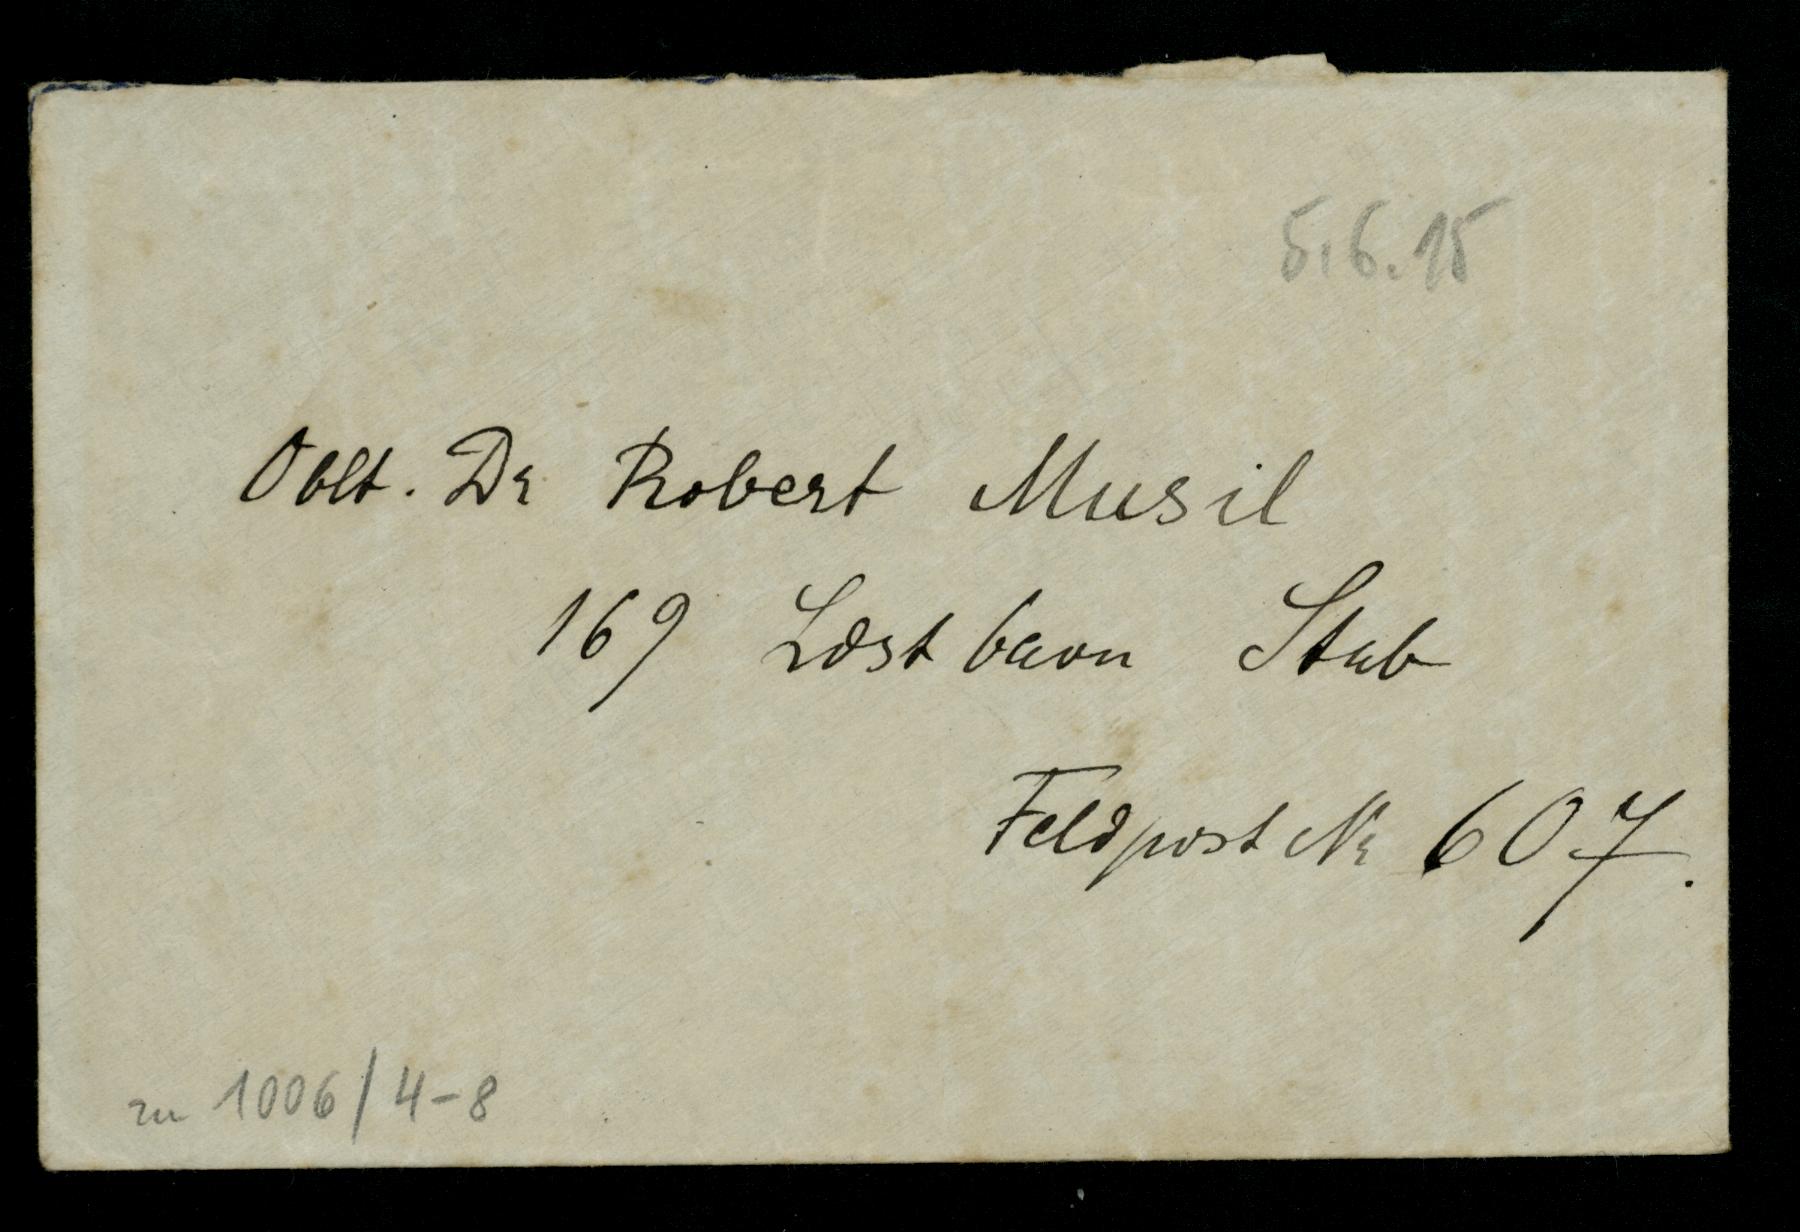 5.6.15
Oblt. Dr Robert Musil
169 Ldst baon Stab
Feldpost Nr 607.
zu 1006/4-8